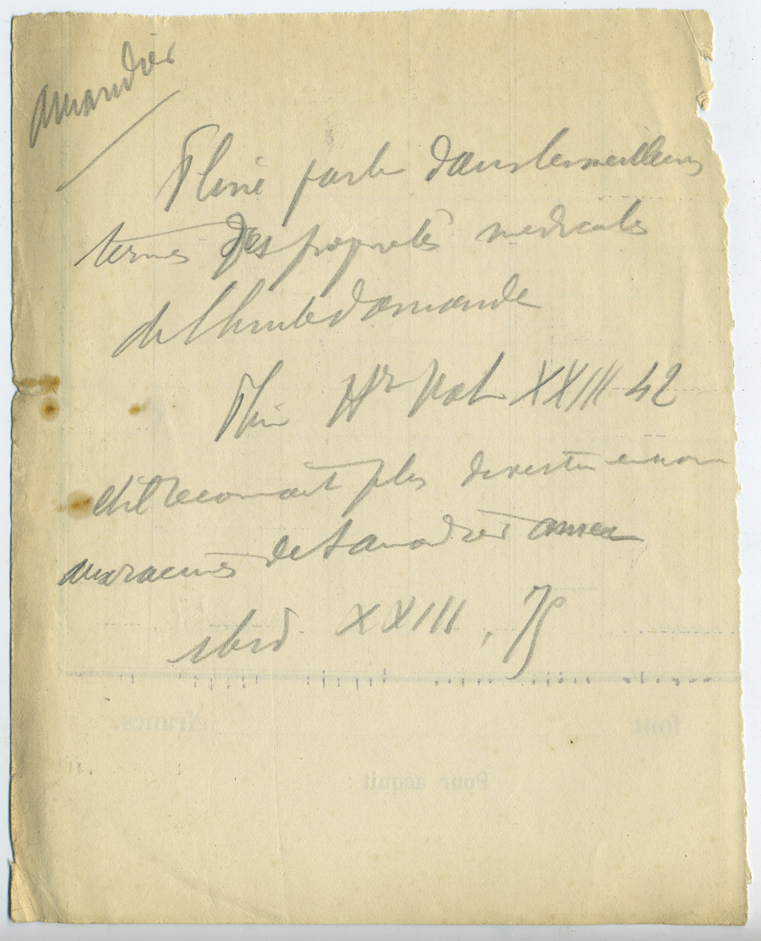 amandier
Pline parle dans les meilleurs
termes des proprietés medicales
de l'huile d'amande
Plin Hre Nat XXIII 42
et il reconnait plus de vertu encore
aux racines de l'amandier amer
ibid XXIII, 75
font francs.
Pour acquit :